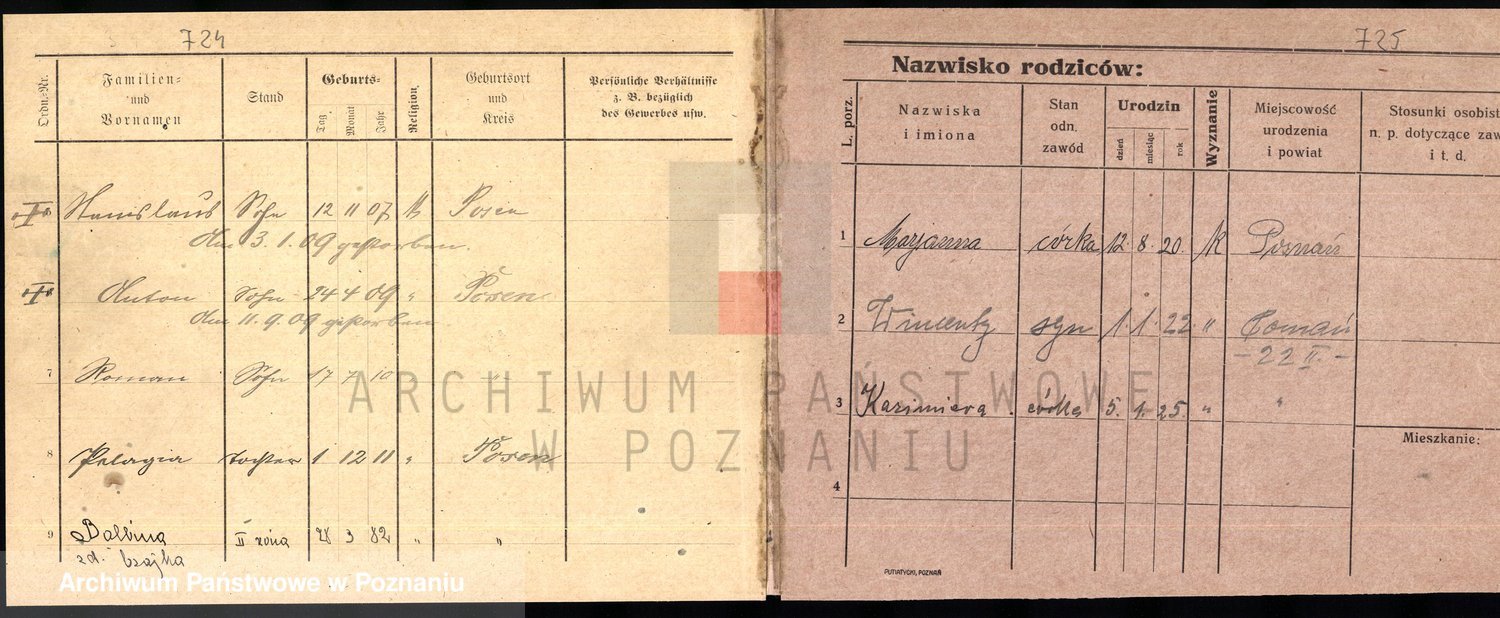 724
Ordn.-Nr.
Familien-
und
Vornamen
Stand
Geburts-
Tag
Monat
Jahr
Religion
Geburtsort
und
Kreis
Persönliche Verhältnisse
z. B. bezüglich
des Gewerbes usw.
Stanislaus Sohn 12 11 07 K Posen
Am 3.1.09 gestorben.
Anton Sohn 24 4 09 " Posen
Am 11.9.09 gestorben.
7 Roman Sohn 17 7 10 "
8 Pelagia Tochter 1 12 11 " Posen
9 Balbina II żona 28 3 82 " "
zd. Czajka
725
Nazwisko rodziców:
L. porz.
Nazwiska
i imiona
Stan
odn.
zawód
Urodzin
dzień
miesiąc
rok
Wyznanie
Miejscowość
urodzenia
i powiat
Stosunki osobist
n. p. dotyczące zaw
i t. d.
1 Marjanna córka 12. 8. 20. K Poznań
2 Wincenty syn 1. 1. 22 " Poznań
- 22 II. -
3 Kazimiera córka 5. 1. 25. " "
Mieszkanie:
4
PUTIATYCKI, POZNAŃ
ARCHIWUM PAŃSTWOWE
W POZNANIU
Archiwum Państwowe w Poznaniu